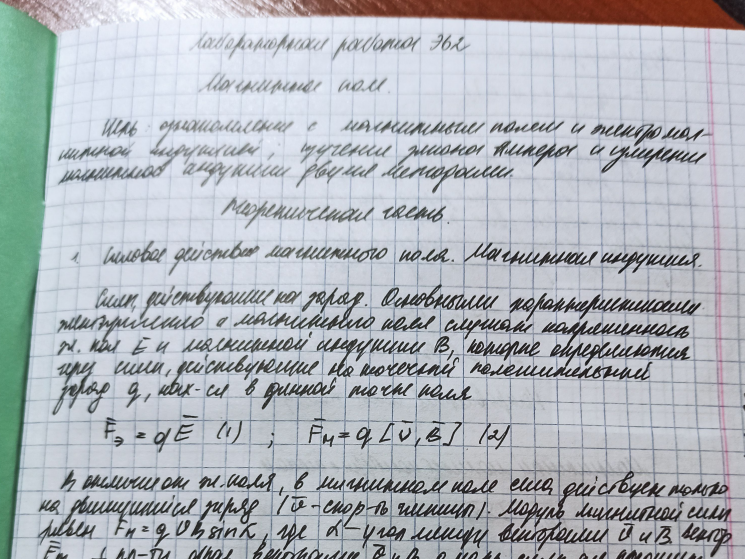 Лабораторная работа Эб2
Магнитное поле.
Цель: ознакомление с магнитным полем и электромаг-
нитной индукцией, изучение закона Ампера и измерение
магнитной индукции двумя методами.
Теоретическая часть.
1. Силовое действие магнитного поля. Магнитная индукция.
Силы, действующие на заряд. Основными характеристиками
электрического и магнитного поля служат напряженность
эл. поля E и магнитной индукции B, которые определяются
через силы, действующие на точечный положительный
заряд q, нах-ся в данной точке поля
F̄э = qĒ (1) ; F̄м = q[ῡ, B̄] (2)
В отличие от эл. поля, в магнитном поле сила действует только
на движущийся заряд (ῡ - скор-ть частицы). Модуль магнитной силы
равен Fм = qυB sinα, где α - угол между векторами ῡ и B̄ вектор